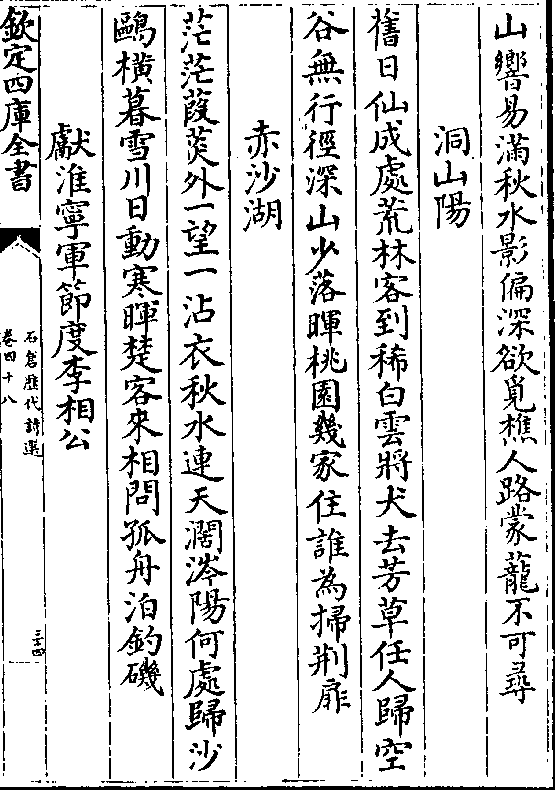 山響易滿秋水影偏深欲覓樵人路蒙蘢不可尋
洞山陽
舊日仙成處荒林客到稀白雲將犬去芳草任人歸空
谷無行徑深山少落暉桃園幾家住誰為掃荆扉
赤沙湖
茫茫葭菼外一望一沾衣秋水連天濶涔陽何處歸沙
鷗橫暮雪川日動寒暉楚客來相問孤舟泊釣磯
獻淮寧軍節度李相公
欽定四庫全書
石倉歷代詩選
卷四十八
三十四